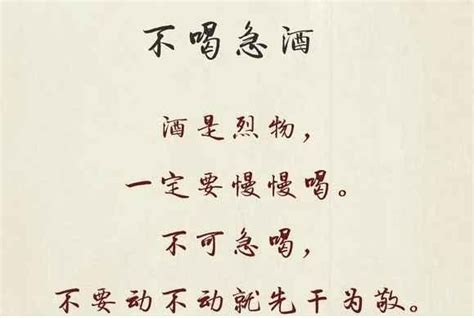 不喝急酒
酒是烈物，
一定要慢慢喝。
不可急喝，
不要动不动就先干为敬。